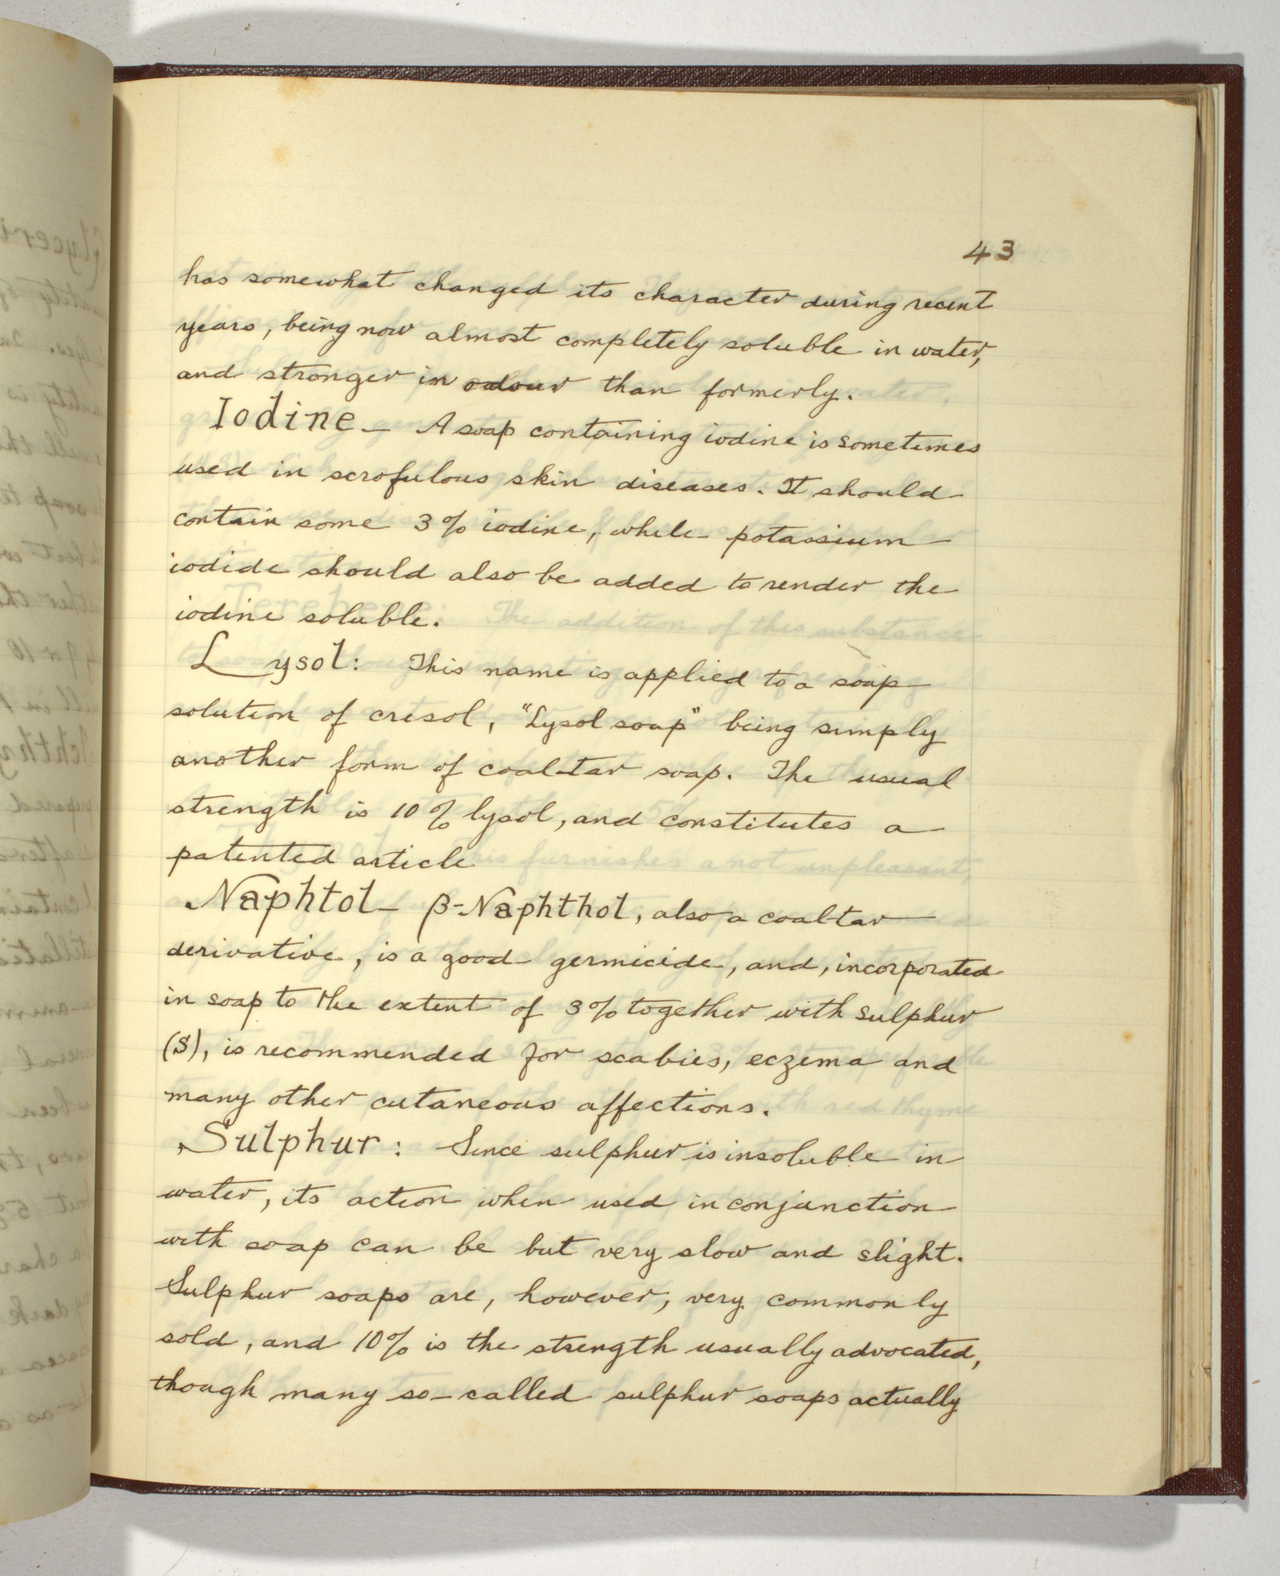 43
has somewhat changed its character during recent
years, being now almost completely soluble in water,
and stronger in odour than formerly.
Iodine – A soap containing iodine is sometimes
used in scrofulous skin diseases. It should
contain some 3% iodine, while potassium
iodide should also be added to render the
iodine soluble.
Lysol: This name is applied to a soap
solution of cresol, "Lysol soap" being simply
another form of coal-tar soap. The usual
strength is 10% lysol, and constitutes a
patented article
Naphtol – β-Naphthol, also a coal-tar
derivative, is a good germicide, and, incorporated
in soap to the extent of 3% together with sulphur
(S), is recommended for scabies, eczema and
many other cutaneous affections.
Sulphur: Since sulphur is insoluble in
water, its action when used in conjunction
with soap can be but very slow and slight.
Sulphur soaps are, however, very commonly
sold, and 10% is the strength usually advocated,
though many so-called sulphur soaps actually